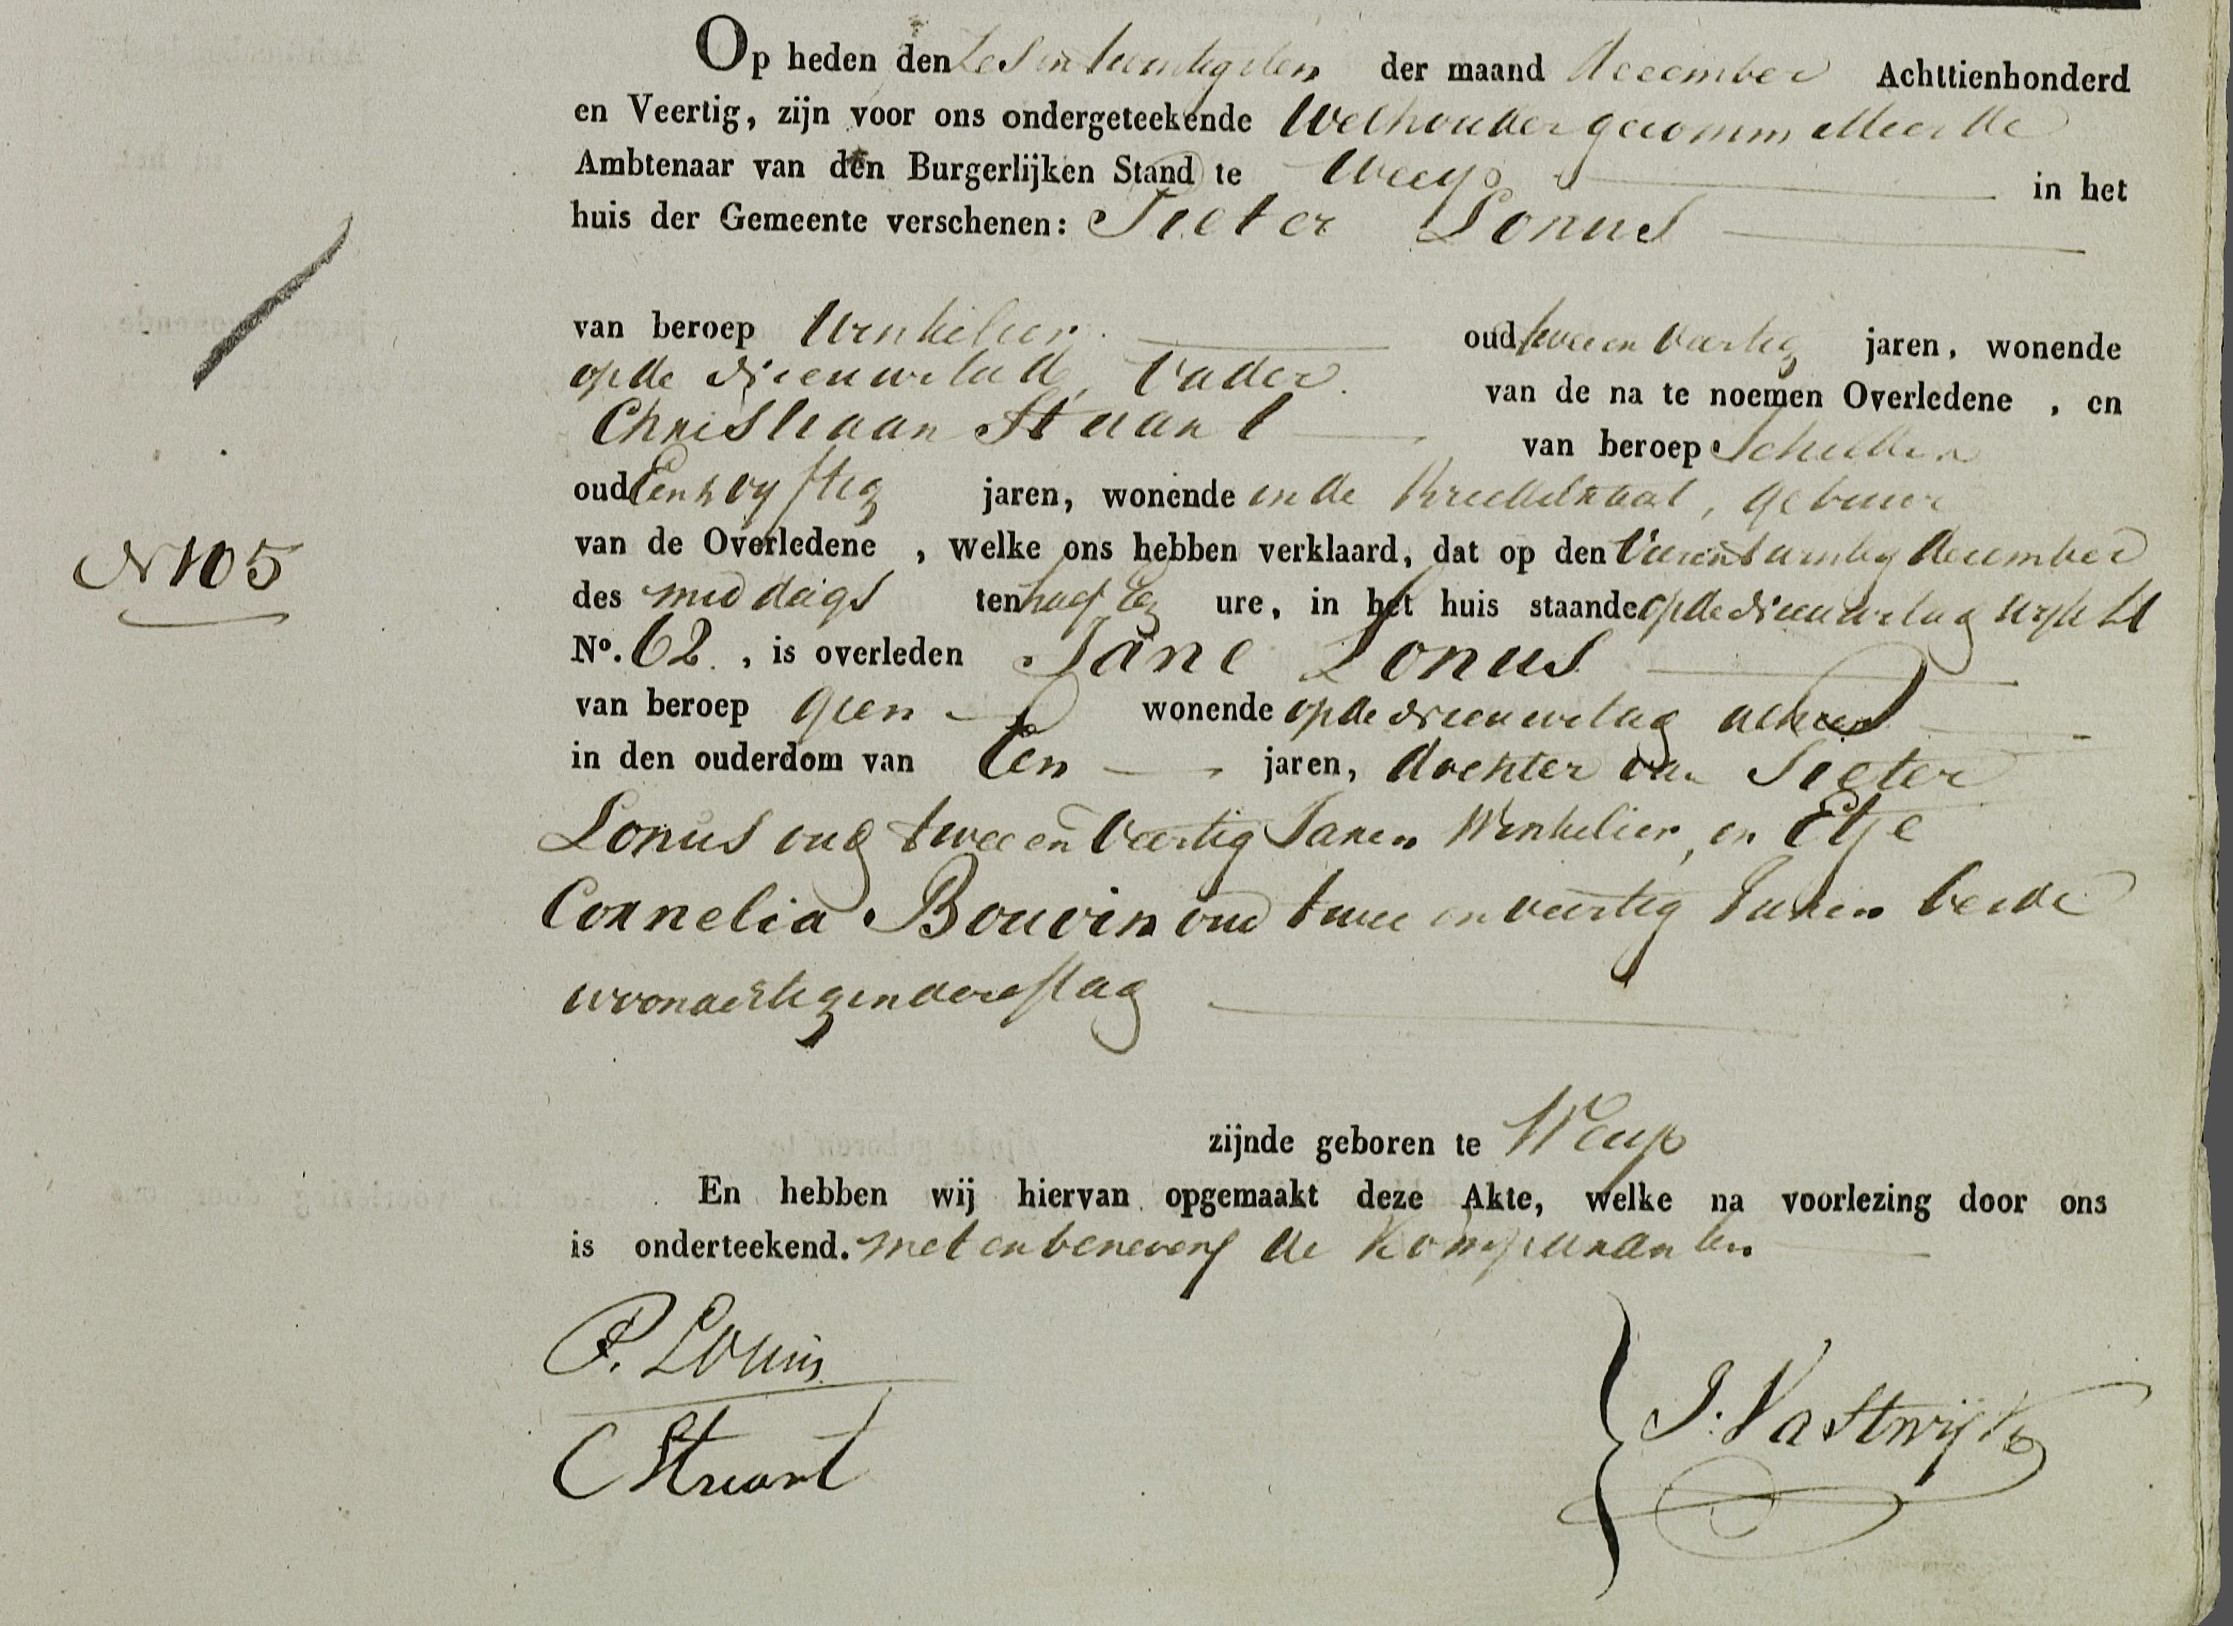 Op heden den Zesentwintigsten der maand december Achttienhonderd
en Veertig, zijn voor ons ondergeteekende Wethouder gecommitteerde
Ambtenaar van den Burgerlijken Stand te Weesp in het
huis der Gemeente verschenen: Pieter Lonus
van beroep Winkelier oud twee en veertig jaren, wonende
op de Nieuwstad, Vader van de na te noemen Overledene , en
Christiaan Stuart van beroep Schilder
oud Een & vyftig jaren, wonende in de Breedstraat, gebuur
van de Overledene , welke ons hebben verklaard, dat op den Vierentwintig december
des middags ten half Een ure, in het huis staande op de Nieuwstad wyk
N105
No. 62. , is overleden Jane Lonus
van beroep geen wonende op de Nieuwstad alhier
in den ouderdom van Een jaren, dochter van Pieter
Lonus oud twee en veertig Jaren Winkelier, en Etje
Cornelia Bouvin oud twee en veertig Jaren beide
woonachtig in
zijnde geboren te Weesp
En hebben wij hiervan opgemaakt deze Akte, welke na voorlezing door ons
is onderteekend. met en benevens de Komparanten
P. Lonus
C Stuart
J. Vastwijk